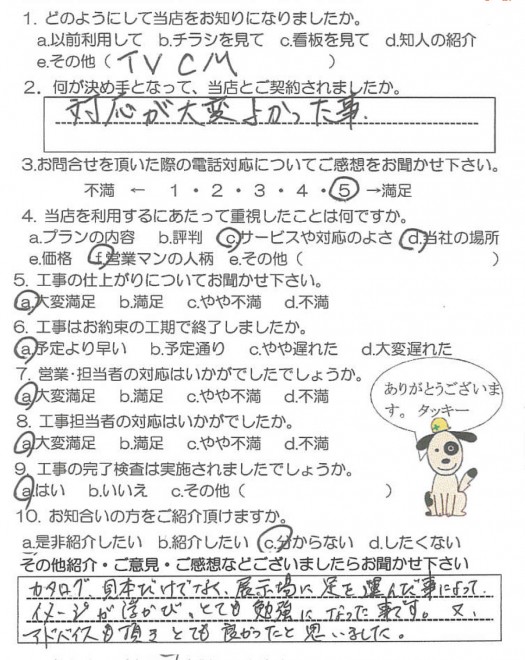 1. どのようにして当店をお知りになりましたか。
a.以前利用して b.チラシを見て c.看板を見て d.知人の紹介
e.その他（ TV CM ）
2．何が決め手となって、当店とご契約されましたか。
対応が大変よかった事.
3.お問合せを頂いた際の電話対応についてご感想をお聞かせ下さい。
不満 ← 1・2・3・4・5 →満足
4. 当店を利用するにあたって重視したことは何ですか。
a.プランの内容 b.評判 c.サービスや対応のよさ d.当社の場所
e.価格 f.営業マンの人柄 e.その他（ ）
5. 工事の仕上がりについてお聞かせ下さい。
a.大変満足 b.満足 c.やや不満 d.不満
6. 工事はお約束の工期で終了しましたか。
a.予定より早い b.予定通り c.やや遅れた d.大変遅れた
7. 営業・担当者の対応はいかがでしたでしょうか。
a.大変満足 b.満足 c.やや不満 d.不満
ありがとうございま
す。 タッキー
8. 工事担当者の対応はいかがでしたか。
a.大変満足 b.満足 c.やや不満 d.不満
9. 工事の完了検査は実施されましたでしょうか。
a.はい b.いいえ c.その他（ ）
10. お知合いの方をご紹介頂けますか。
a.是非紹介したい b.紹介したい c.分からない d.したくない
その他紹介・ご意見・ご感想などございましたらお聞かせ下さい
カタログ、見本だけでなく、展示場に足を運んだ事によって、
イメージが浮かび、とても勉強になった事です。又、
アドバイスも頂きとても良かったと思いました。